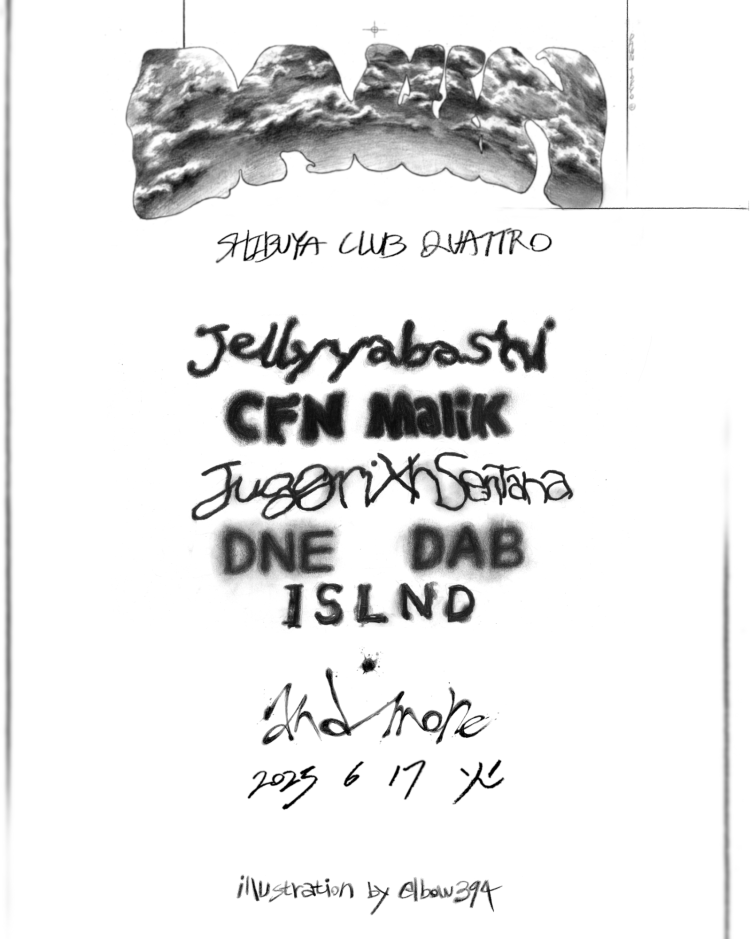 SHIBUYA CLUB QUATTRO
Jellyyabashi
CFN Malik
Jugg@riXhSenTana
DNE DAB
ISLND
and more
2025 6 17 火
illustration by elbow394